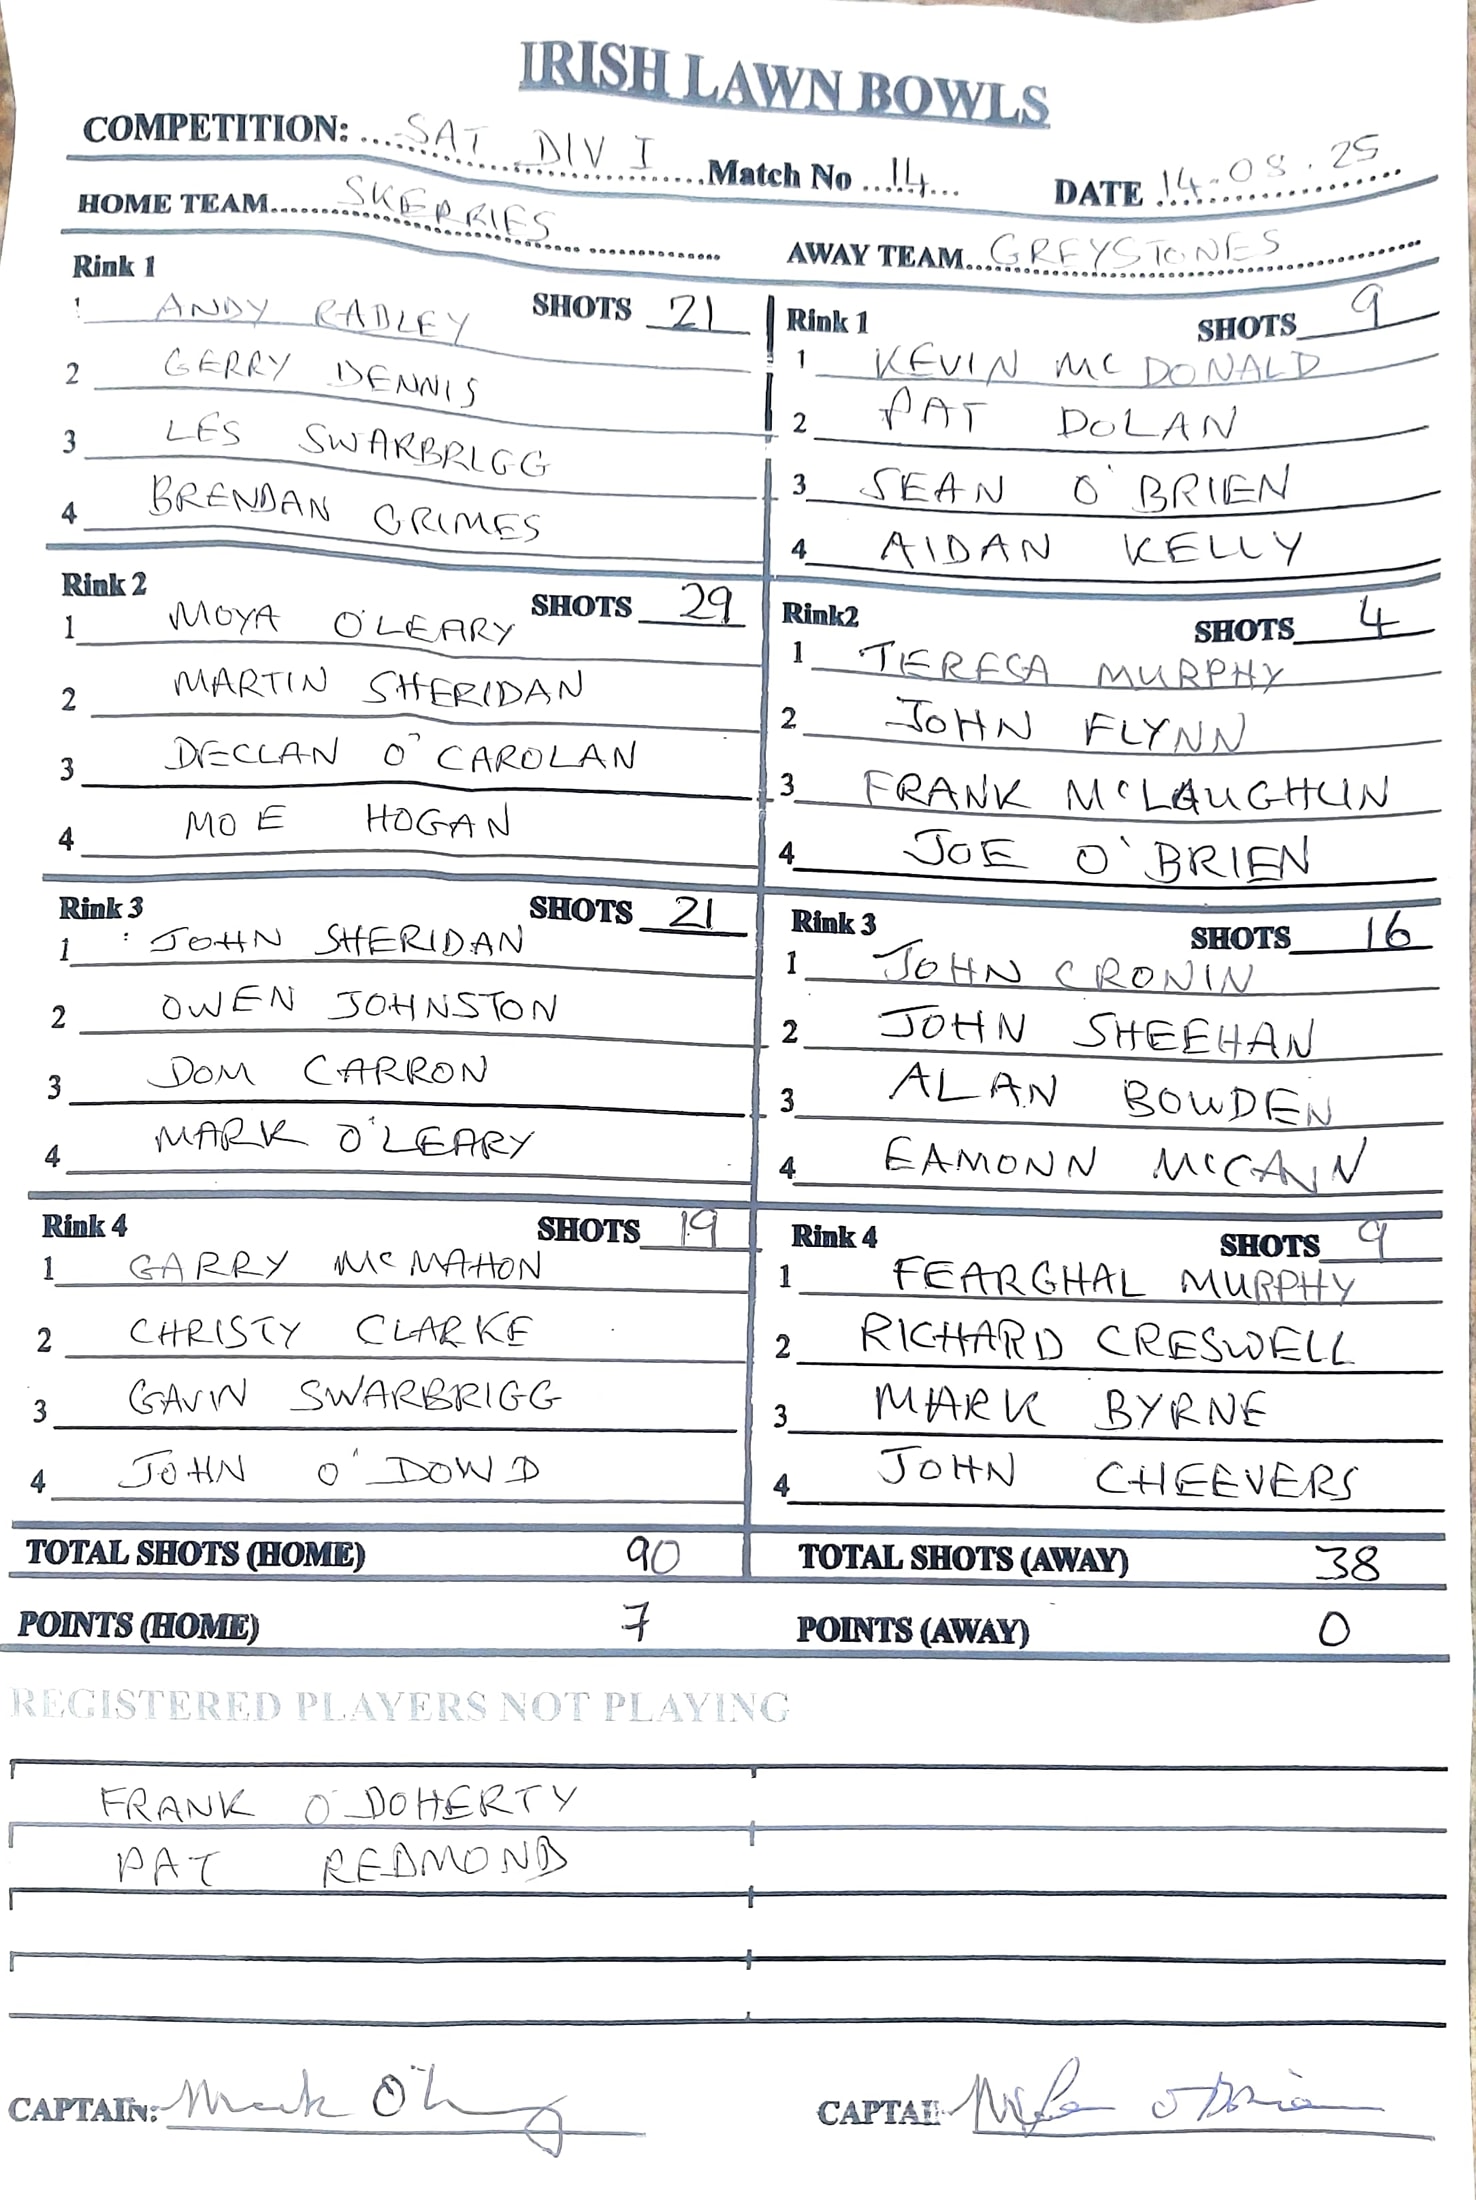 IRISH LAWN BOWLS
COMPETITION: SAT DIV I Match No 14 DATE 14.08.25
HOME TEAM SKERRIES AWAY TEAM GREYSTONES
Rink 1 SHOTS 21
1 ANDY RADLEY
2 GERRY DENNIS
3 LES SWARBRIGG
4 BRENDAN GRIMES
Rink 1 SHOTS 9
1 KEVIN MC DONALD
2 PAT DOLAN
3 SEAN O'BRIEN
4 AIDAN KELLY
Rink 2 SHOTS 29
1 MOYA O'LEARY
2 MARTIN SHERIDAN
3 DECLAN O'CAROLAN
4 MOE HOGAN
Rink2 SHOTS 4
1 TERESA MURPHY
2 JOHN FLYNN
3 FRANK McLAUGHLIN
4 JOE O'BRIEN
Rink 3 SHOTS 21
1 JOHN SHERIDAN
2 OWEN JOHNSTON
3 DOM CARRON
4 MARK O'LEARY
Rink 3 SHOTS 16
1 JOHN CRONIN
2 JOHN SHEEHAN
3 ALAN BOWDEN
4 EAMONN McCANN
Rink 4 SHOTS 19
1 GARRY McMAHON
2 CHRISTY CLARKE
3 GAVIN SWARBRIGG
4 JOHN O'DOWD
Rink 4 SHOTS 9
1 FEARGHAL MURPHY
2 RICHARD CRESWELL
3 MARK BYRNE
4 JOHN CHEEVERS
TOTAL SHOTS (HOME) 90 TOTAL SHOTS (AWAY) 38
POINTS (HOME) 7 POINTS (AWAY) 0
REGISTERED PLAYERS NOT PLAYING
FRANK O'DOHERTY
PAT REDMOND
CAPTAIN: Mark O'L CAPTAI O'Brien